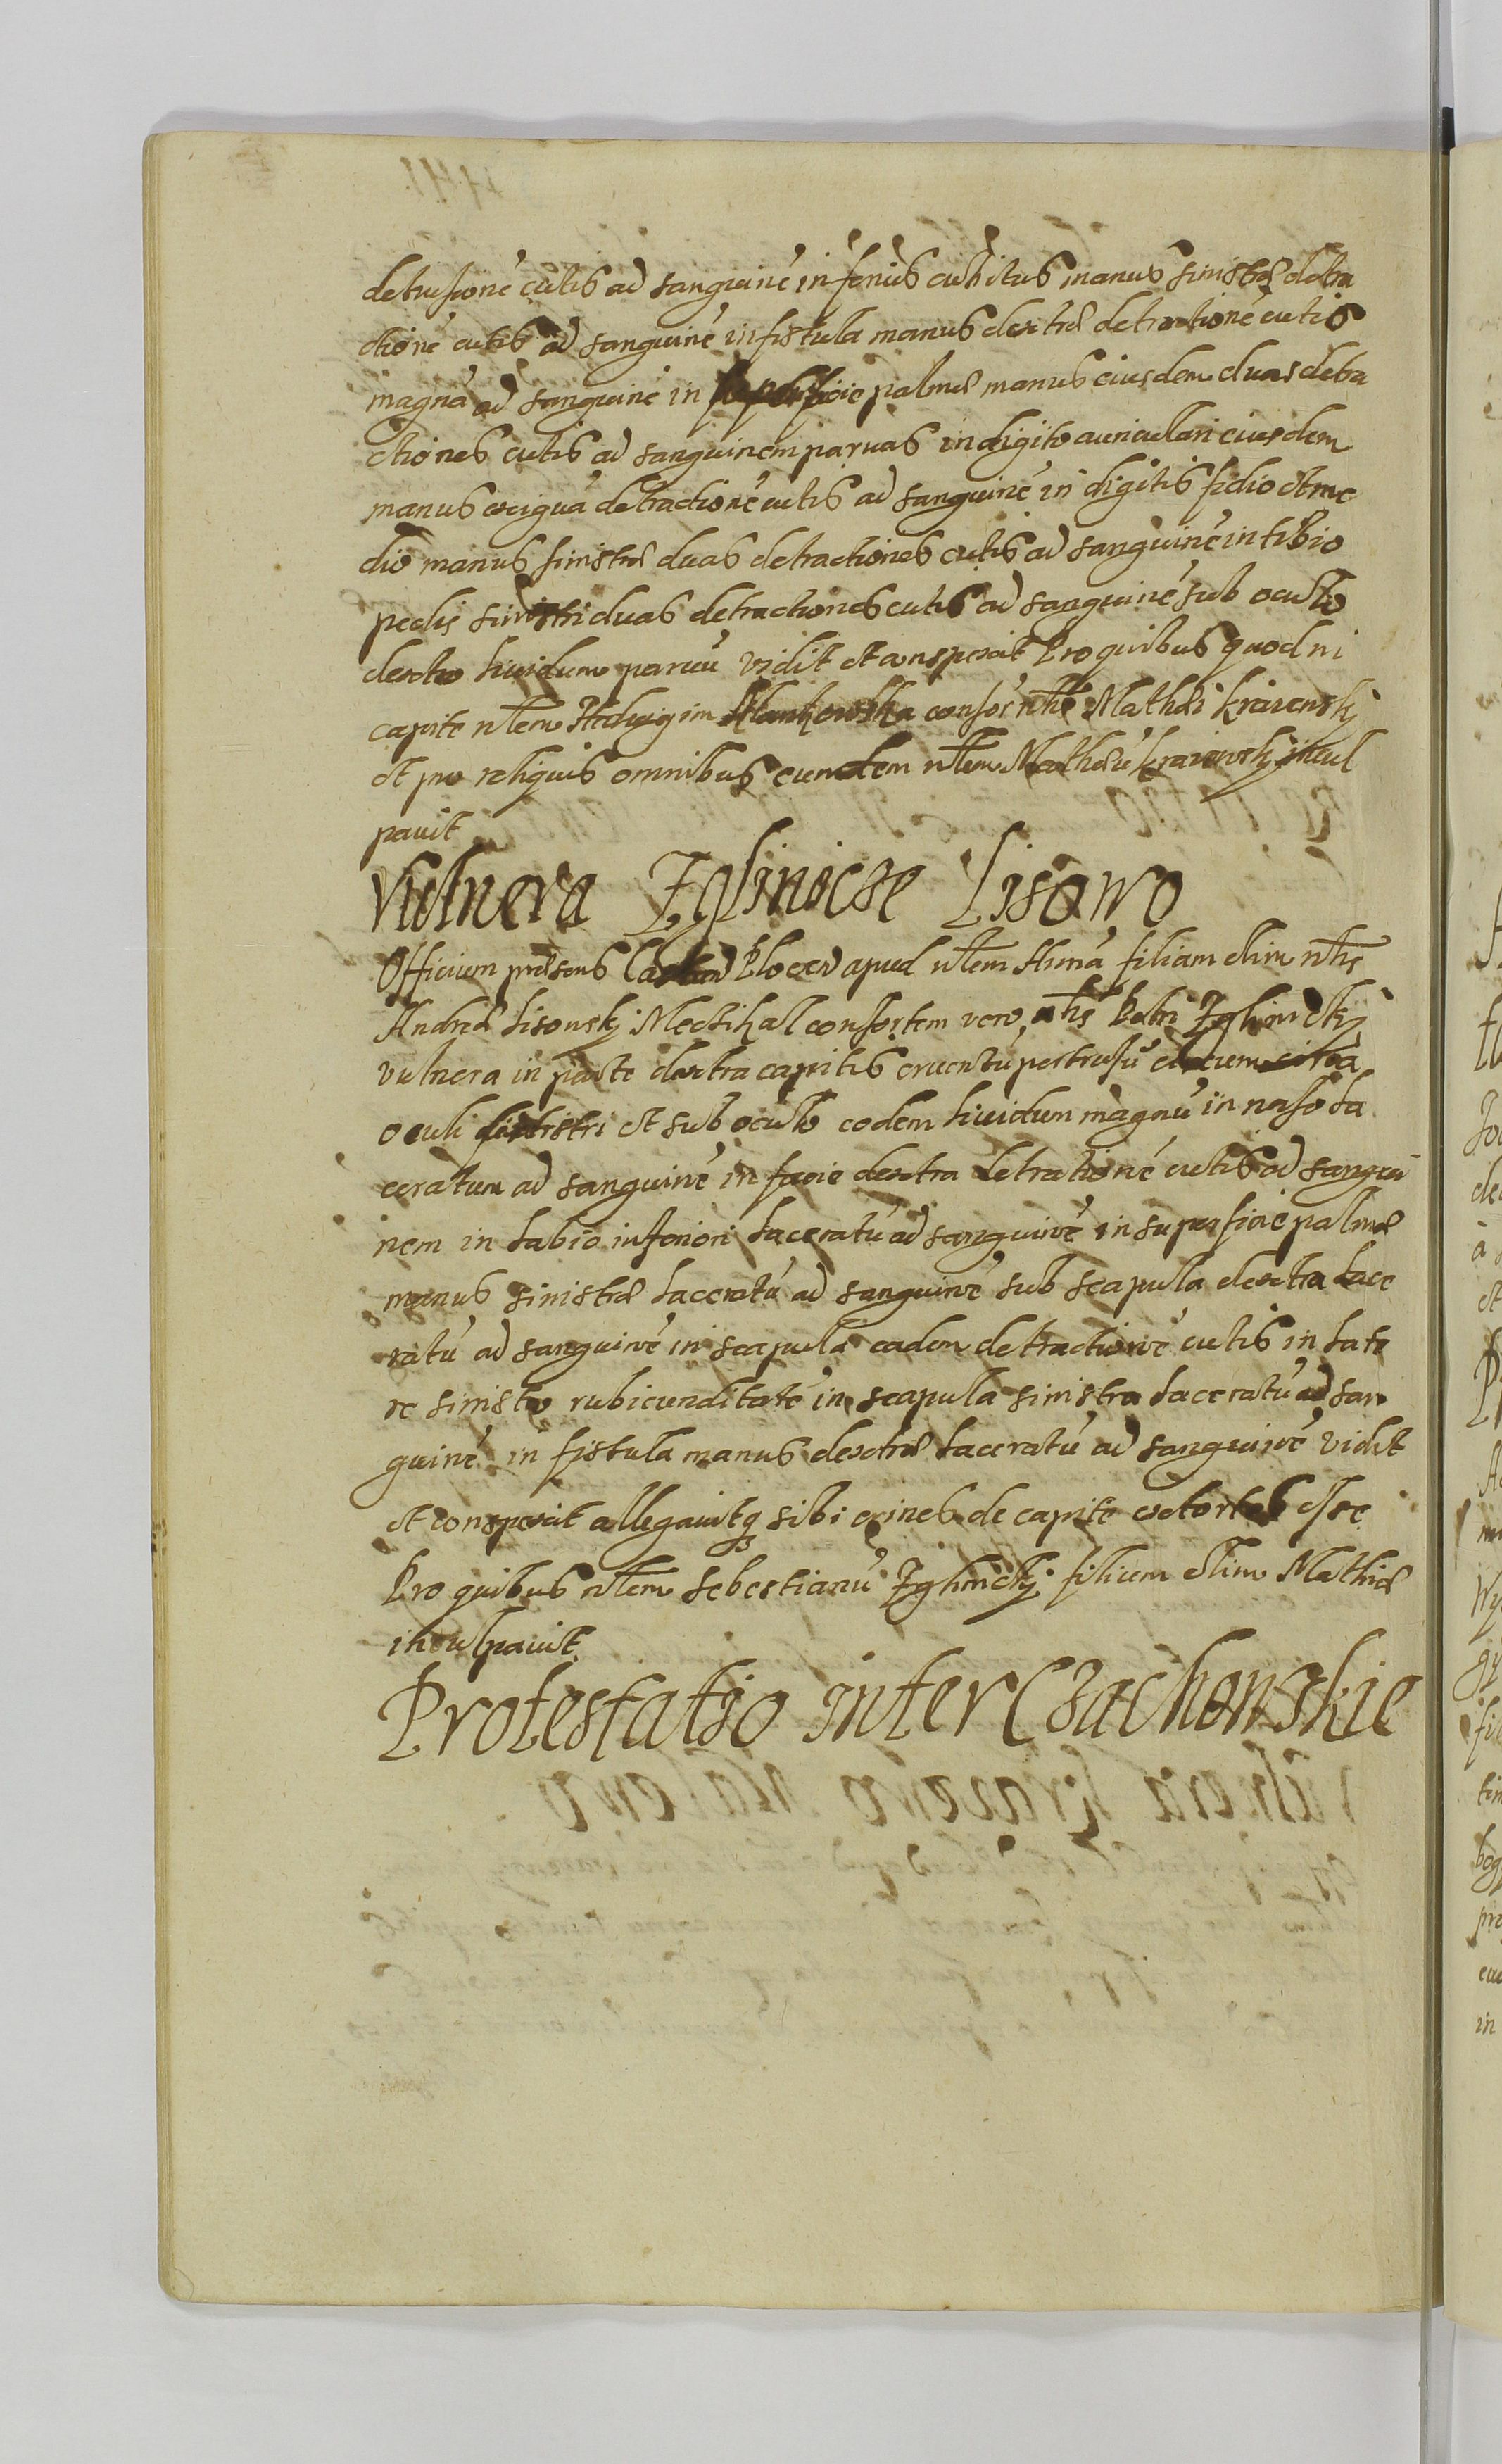 detrusionē cutis ad sanguinē inferius cubitus manus sinistræ detra
ctionē cutis ad sanguinē in fistula manus dextræ detractionē cutis
magnā ad sanguinē in superficie palmæ manus eiusdem duas detra
ctiones cutis ad sanguinem paruas in digito auriculari eiusdem
manus exiguā detractionē cutis ad sanguinē in digitis et me
dio manus sinistræ duas detractiones cutis ad sanguinē in tibio
pedis sinistri duas detractiones cutis ad sanguinē sub oculo
dextro liuidum paruū vidit et conspexit Pro quibus quod ni
capite nblem Hedvigim consor nblis Mathæi kraiewskj
et pro reliquis omnibus eundem nblem Mathæū kraiewskj incul
pauit
Vulnera Zglinicse Lisowo
Officium præsens Castren Plocen apud nblem Annā filiam olim nblis
Andreæ Lisowskj consortem vero nblis Petri Zglinickj
vulnera in parte dextra capitis cruentū pertrusū circa
oculi sinistri et sub oculo eodem liuidum magnū in naso la
ceratum ad sanguinē in facie dextra detractionē cutis ad sangui
nem in labio inferiori laceratū ad sanguinē in superficie palmæ
manus sinistræ laceratū ad sanguinē sub scapula dextra lace
ratū ad sanguinē in scapula eadem detractionē cutis in late
re sinistro rubicunditatē in scapula sinistra laceratū ad san
guinē in fistula manus dextræ laceratū ad sanguinē vidit
et conspexit allegauitq sibi crines de capite extortos esse
Pro quibus nblem Sebestianū Zglinickj filium olim Mathiæ
inculpauit
Protestatio inter Czachowskie